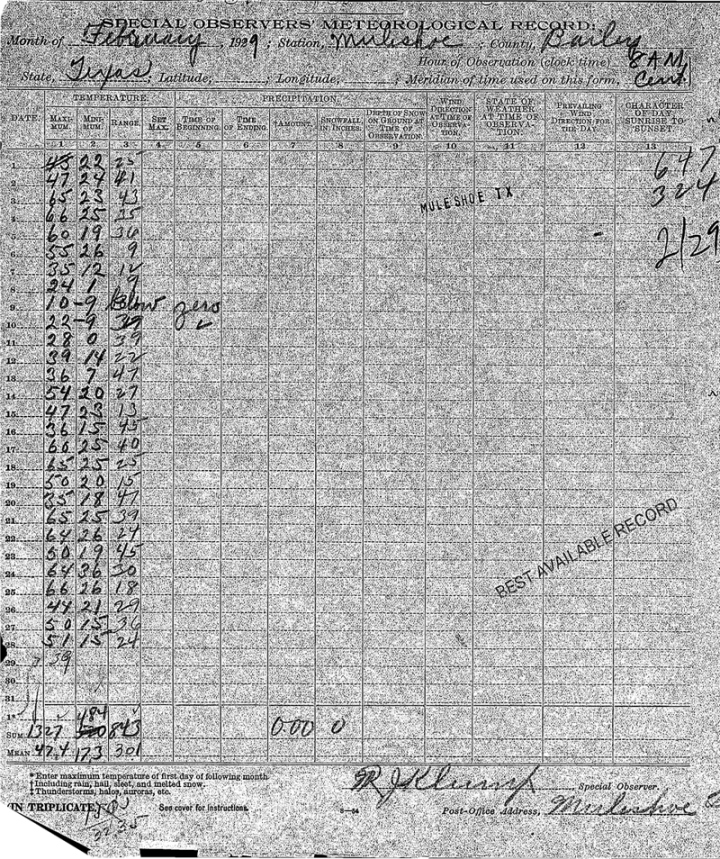 SPECIAL OBSERVERS' METEOROLOGICAL RECORD:
Month of February, 1929; Station, Muleshoe; County, Bailey
Hour of Observation (clock time) 8 AM
State, Texas; Latitude, ; Longitude, ; Meridian of time used on this form, Cent.
TEMPERATURE. PRECIPITATION.
DATE. MAXIMUM. MINIMUM. RANGE. SET MAX. TIME OF BEGINNING. TIME OF ENDING. †AMOUNT. SNOWFALL IN INCHES. DEPTH OF SNOW ON GROUND AT TIME OF OBSERVATION. WIND DIRECTION AT TIME OF OBSERVATION. STATE OF WEATHER AT TIME OF OBSERVATION. PREVAILING WIND DIRECTION FOR THE DAY. CHARACTER OF DAY, SUNRISE TO SUNSET
1 2 3 4 5 6 7 8 9 10 11 12 13
1. 22 25
2. 47 24 41
3. 65 23 43
4. 66 25 35
5. 60 19 36
6. 55 26 9
7. 35 12 12
8. 24 1 9
9. 10 -9 Below zero
10. 22 -9
11. 28 0 39
12. 39 14 22
13. 36 7 47
14. 54 20 27
15. 47 23 13
16. 36 15 45
17. 60 25 40
18. 65 25 25
19. 50 20 15
20. 35 18 47
21. 65 25 39
22. 64 26 24
23. 50 19 45
24. 64 36 30
25. 66 26 18
26. 44 21 29
27. 50 15 36
28. 51 15 24
29. 39
30.
31.
1*
484
SUM. 1327 843 0.00 0
MEAN. 47.4 17.3 30.1
647
324
2/29
MULESHOE TX
BEST AVAILABLE RECORD
*Enter maximum temperature of first day of following month.
†Including rain, hail, sleet, and melted snow.
‡Thunderstorms, halos, auroras, etc.
M R J Klump Special Observer.
(IN TRIPLICATE.) See cover for instructions. Post-Office Address, Muleshoe
2235